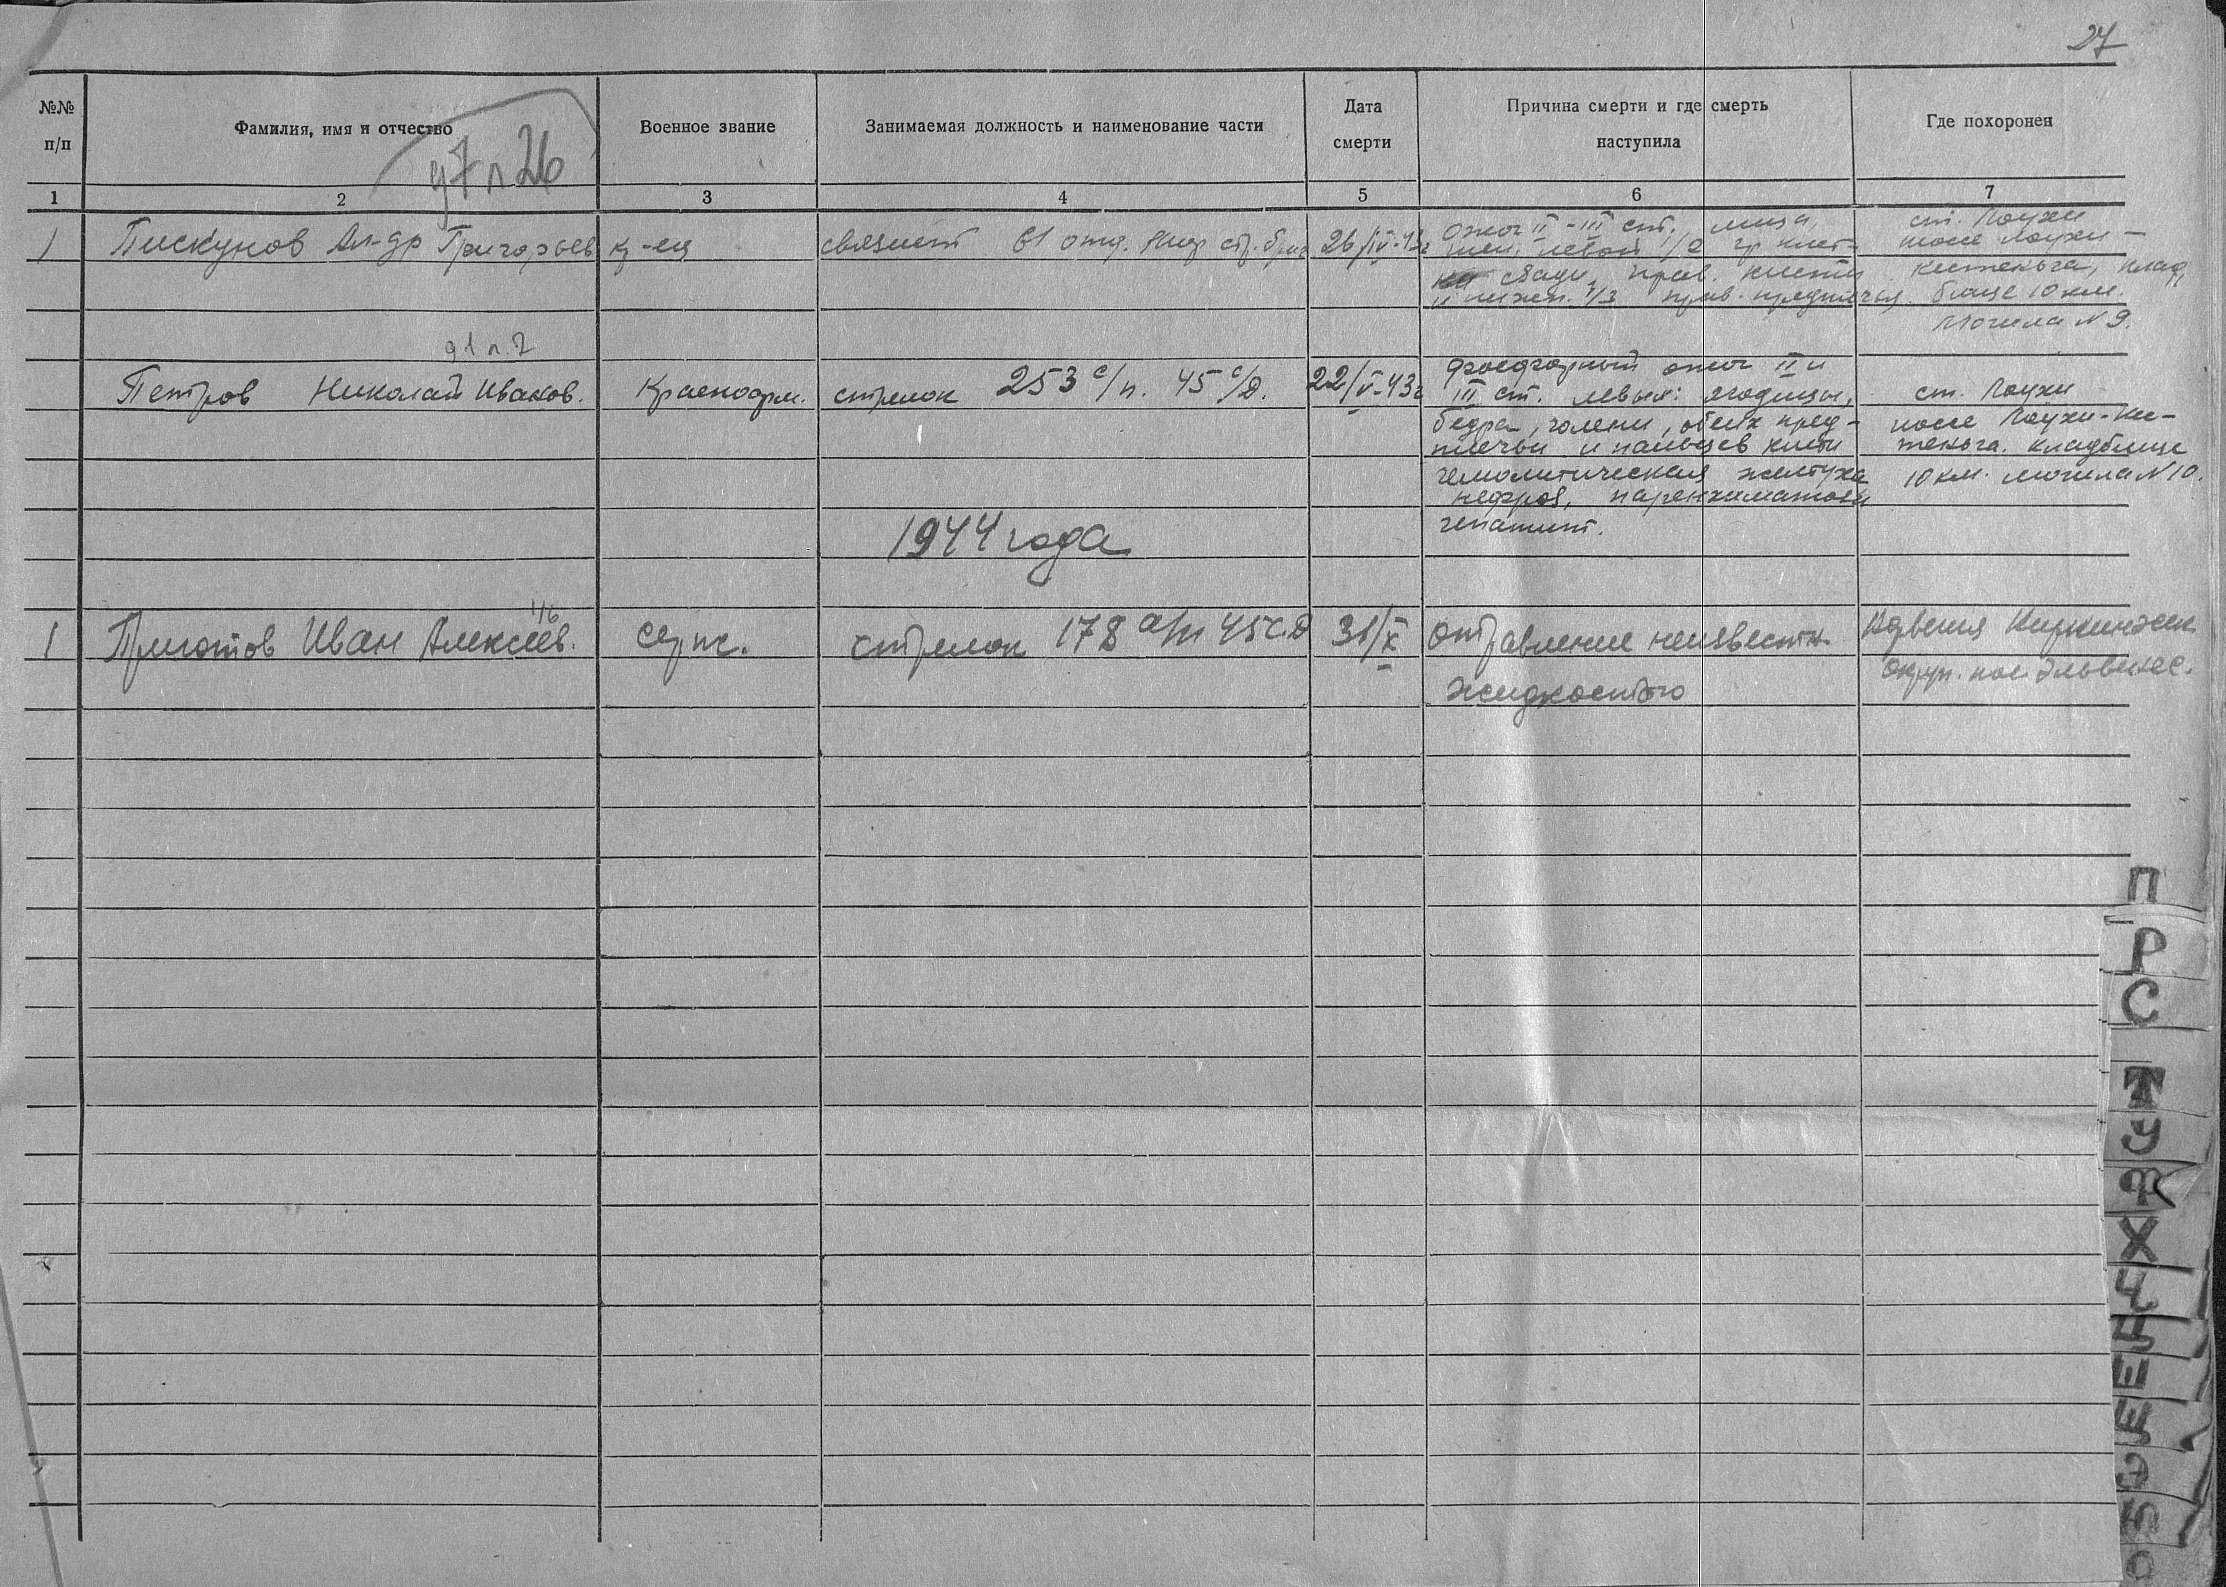 27
№№ п/п
Фамилия, имя и отчество
Военное звание
Занимаемая должность и наименование части
Дата смерти
Причина смерти и где смерть наступила
Где похоронен
д 7 л 26
1 2 3 4 5 6 7
1 Пискунов Ал-др Григорьев кр-ец связист 61 отд. стр. бриг 26/IV-43г
Ожог II-III ст. лица,
шеи, левой 1/2 гр. клет-
ки сзади, прав. кисти
и нижн. 1/3 прав. предплечья.
ст. Лоухи
шоссе Лоухи-
Кестеньга, клад
бище 10 км.
Могила N 9.
д 1 л. 2
Петров Николай Иванов. Красноарм. стрелок 253 с/п. 45 с/д. 22/V-43г
Фосфорный ожог II и
III ст. левых: ягодицы,
бедра, голени, обеих пред-
плечьи и пальцев кисти
гемолитическая желтуха
нефроз, паренхиматозн
гепатит.
ст. Лоухи
шоссе Лоухи-Ке-
теньга. кладбище
10 км. могила N 10.
1944 года
1/6
1 Иван Алексеев. серж. стрелок 178 45 с.д 31/X
Отравление неизвестн.
жидкостью
Норвегия Киркинэсск
округ. пос. Эльвенес.
П
Р
С
Т
У
Ф
Х
Ч
Ц
Ш
Щ
Э